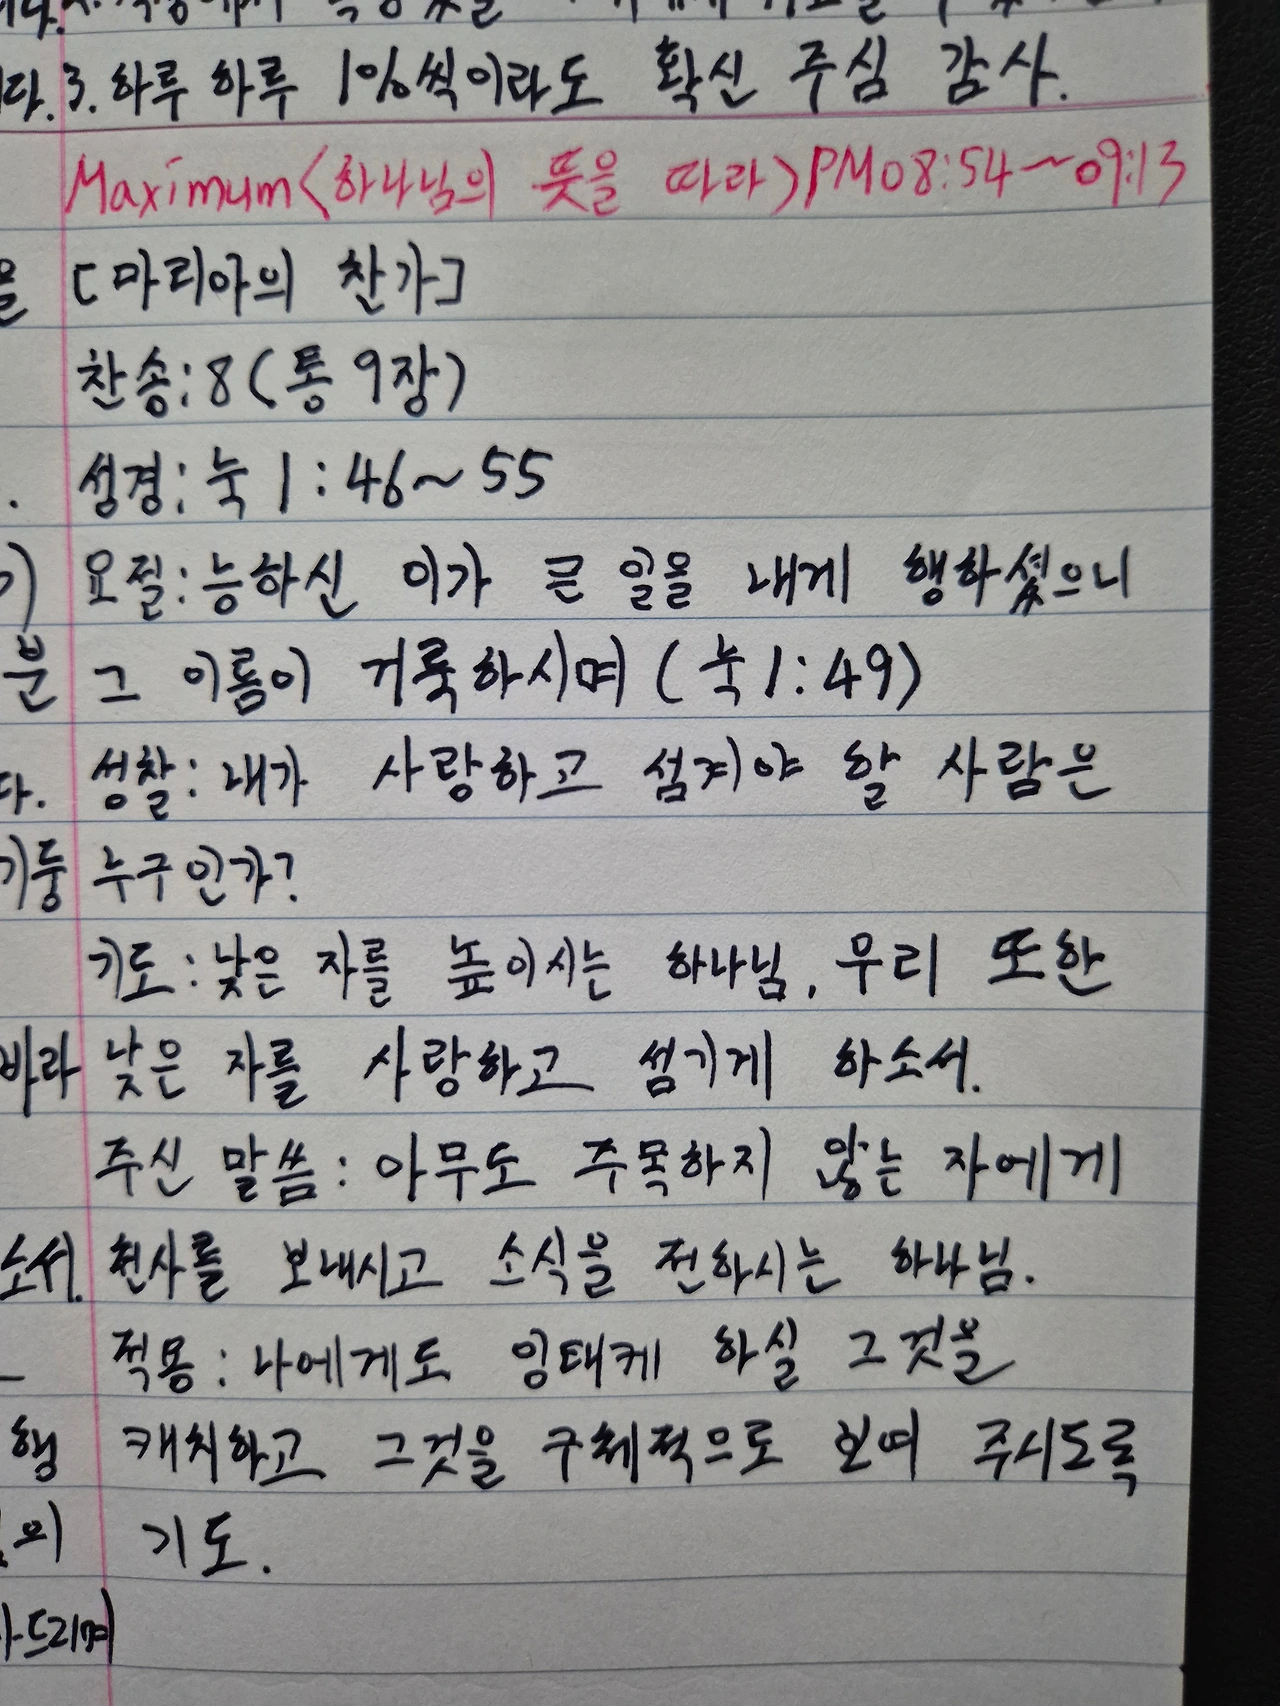 다.3. 하루하루 1%씩이라도 확신 주심 감사.
Maximum<하나님의 뜻을 따라>PM08:54~09:13
을 [마리아의 찬가]
찬송:8(통 9장)
성경:눅1:46~55
기) 요절:능하신 이가 큰 일을 내게 행하셨으니
분 그 이름이 거룩하시며(눅1:49)
다. 성찰:내가 사랑하고 섬겨야 할 사람은
기둥 누구인가?
기도:낮은 자를 높이시는 하나님, 우리 또한
바라 낮은 자를 사랑하고 섬기게 하소서.
주신 말씀:아무도 주목하지 않는 자에게
소서. 천사를 보내시고 소식을 전하시는 하나님.
적용:나에게도 잉태케 하실 그것을
행 캐치하고 그것을 구체적으로 보여 주시도록
의 기도.
드리며